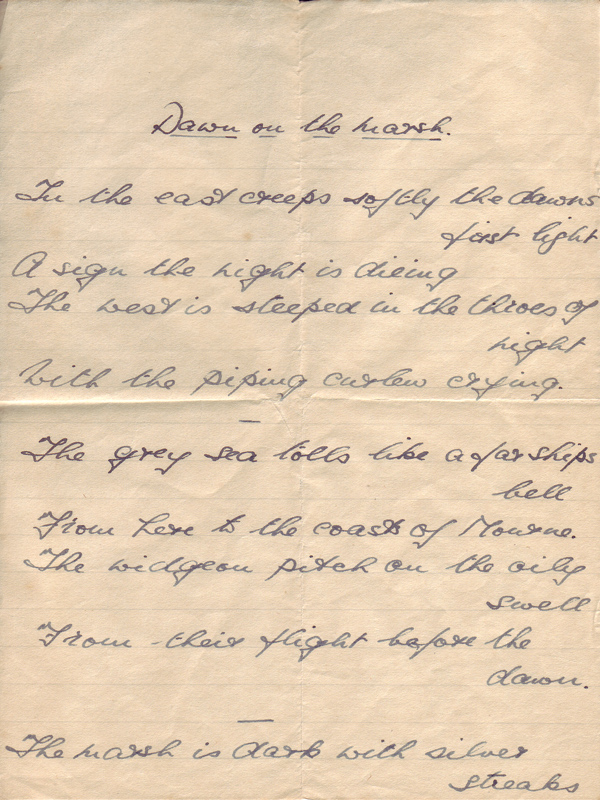 Dawn on the marsh.
In the east creeps softly the dawns
first light
A sign the night is dieing
The west is steeped in the throes of
night
With the piping curlew crying.
—
The grey sea tolls like a far ships
bell
From here to the coasts of Mourne.
The widgeon pitch on the oily
swell
From their flight before the
dawn.
—
The marsh is dark with silver
streaks